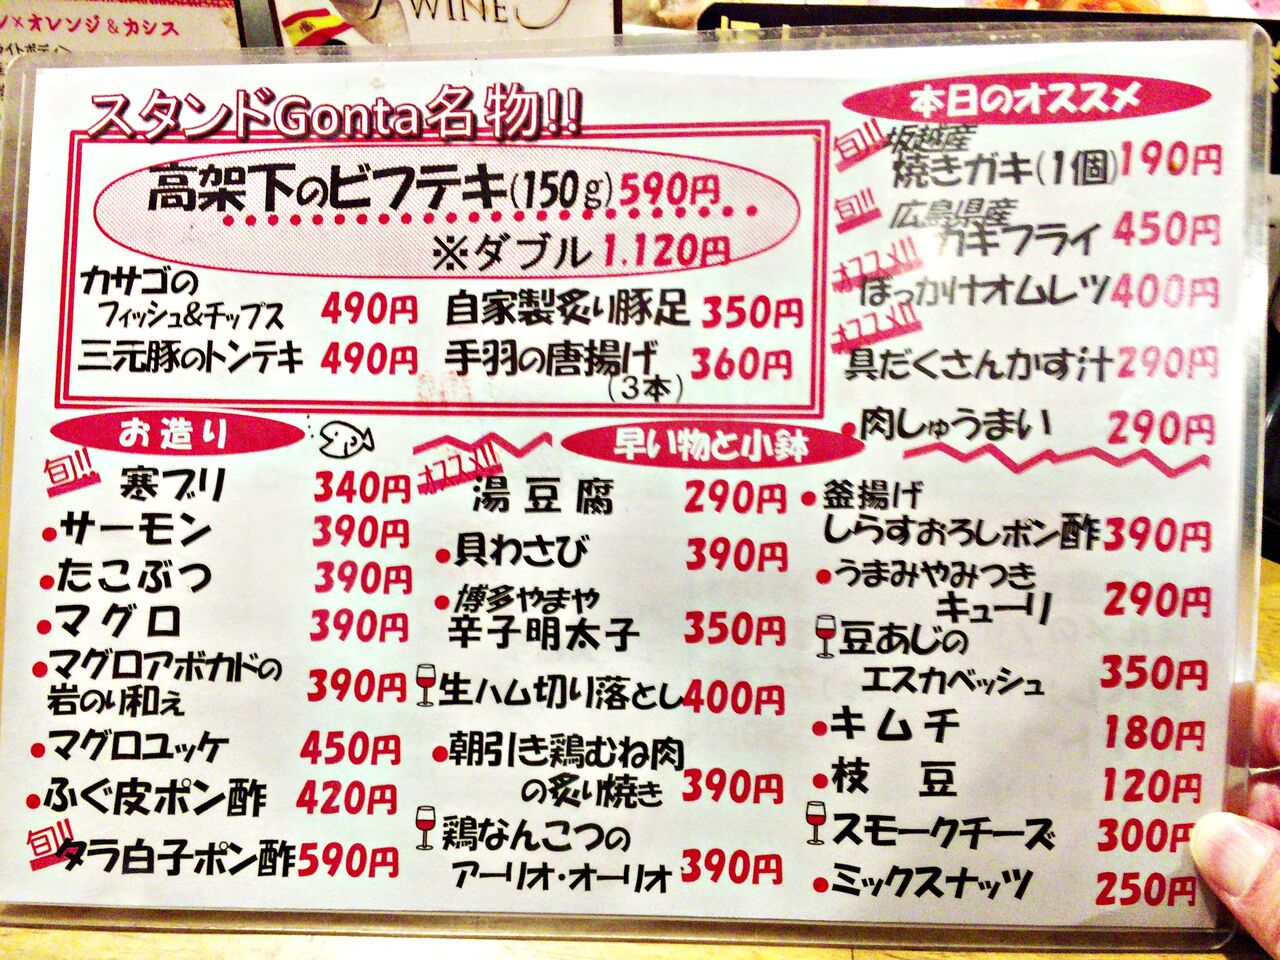 WINE
×オレンジ&カシス
スタンドGonta名物!!
高架下のビフテキ(150g)590円
※ダブル 1.120円
カサゴの
フィッシュ&チップス 490円
三元豚のトンテキ 490円
自家製炙り豚足 350円
手羽の唐揚げ 360円
(3本)
本日のオススメ
旬!! 坂越産
焼きガキ(1個) 190円
旬!! 広島県産
カキフライ 450円
オススメ!!
ぼっかけオムレツ 400円
オススメ!!
具だくさんかす汁 290円
●肉しゅうまい 290円
お造り
旬!! 寒ブリ 340円
●サーモン 390円
●たこぶつ 390円
●マグロ 390円
●マグロアボカドの
岩のり和え 390円
●マグロユッケ 450円
●ふぐ皮ポン酢 420円
旬!! タラ白子ポン酢 590円
早い物と小鉢
オススメ!! 湯豆腐 290円
●貝わさび 390円
●博多やまや
辛子明太子 350円
生ハム切り落とし 400円
●朝引き鶏むね肉
の炙り焼き 390円
鶏なんこつの
アーリオ・オーリオ 390円
●釜揚げ
しらすおろしポン酢 390円
●うまみやみつき
キューリ 290円
豆あじの
エスカベッシュ 350円
●キムチ 180円
●枝豆 120円
スモークチーズ 300円
●ミックスナッツ 250円